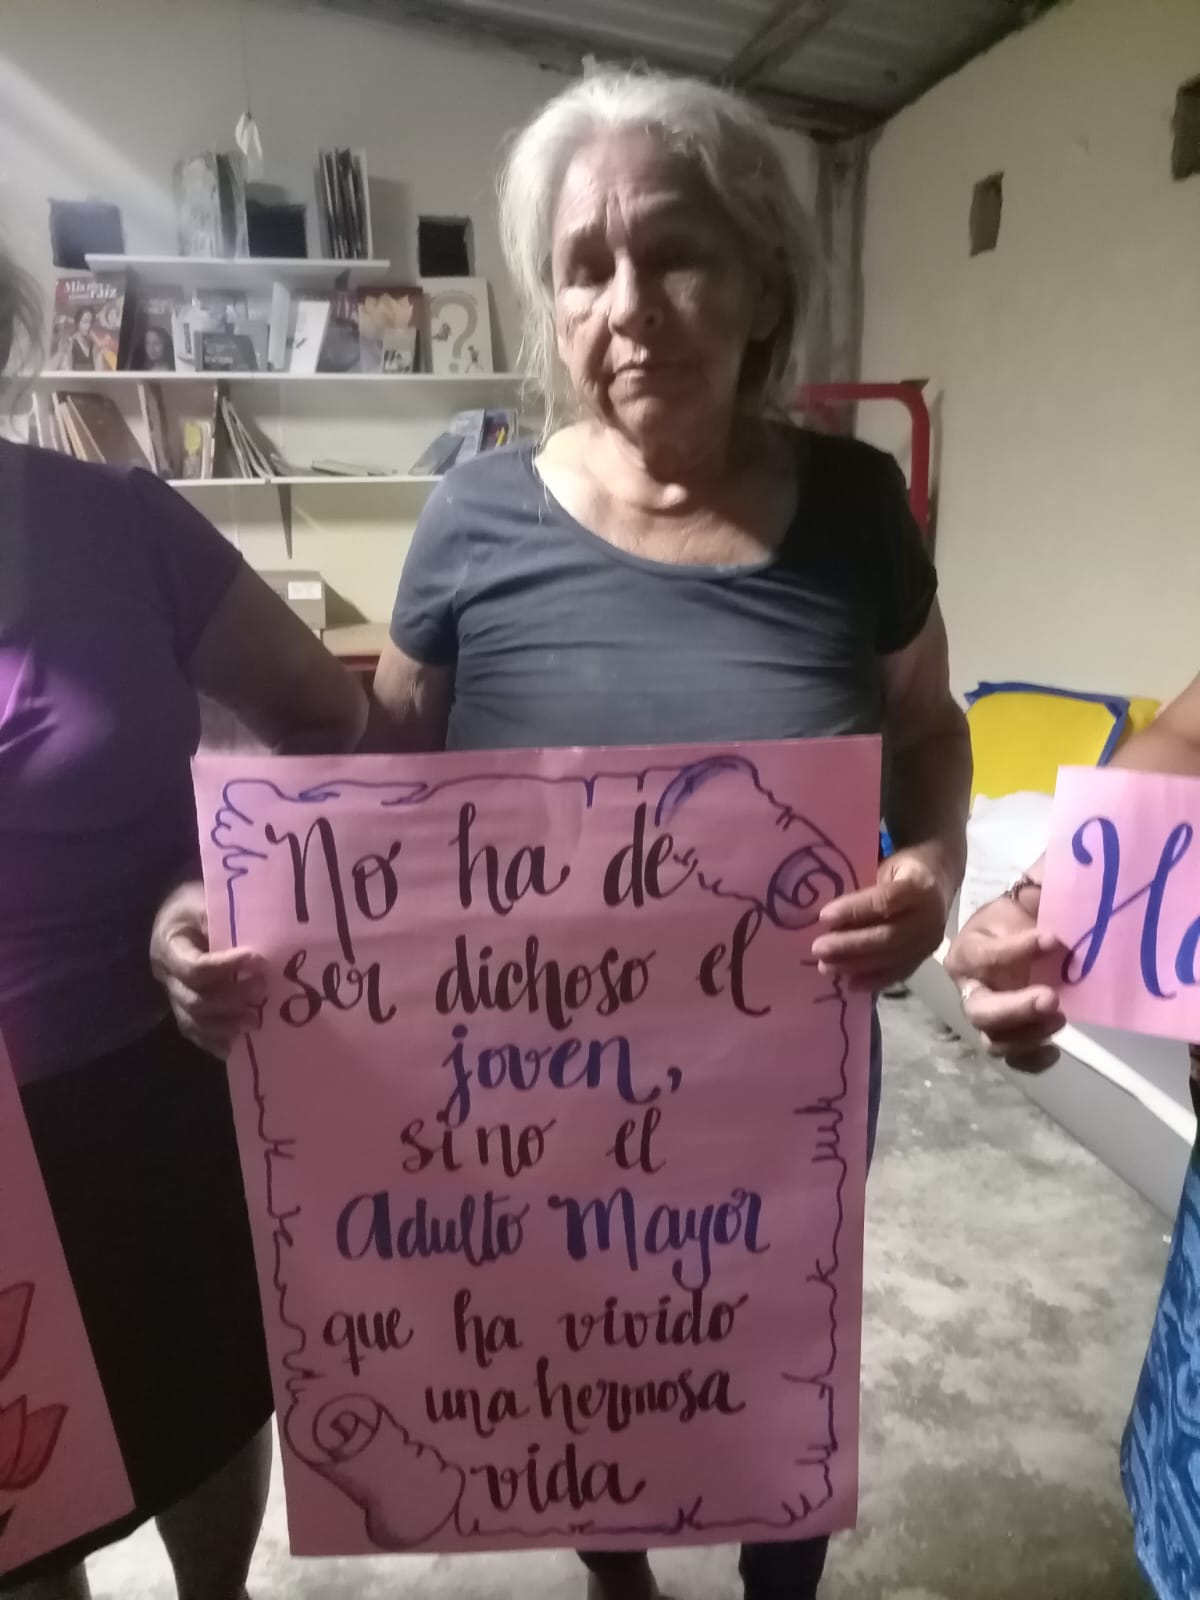 No ha de
ser dichoso el
joven,
sino el
Adulto Mayor
que ha vivido
una hermosa
vida
Ha
Mis
raíz
?